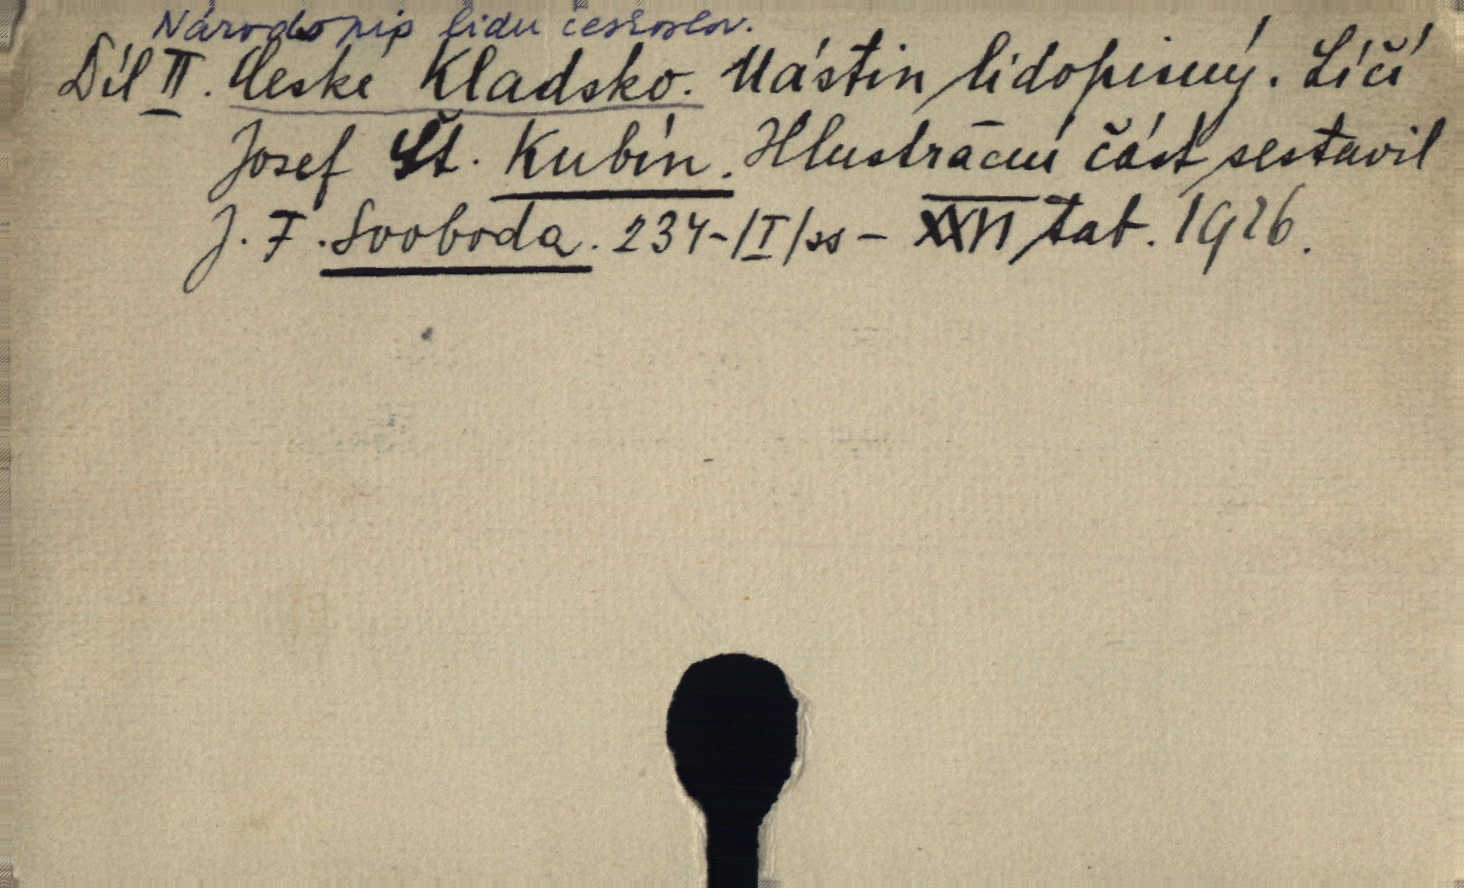 Národopis lidu českoslov.
Díl II. České Kladsko. Nástin lidopisný. Líčí
Josef Št. Kubín. Illustrační část sestavil
J. F. Svoboda. 234-/I/ss - XXVI tab. 1926.